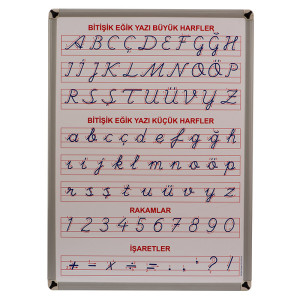 BİTİŞİK EĞİK YAZI BÜYÜK HARFLER
A B C Ç D E F G Ğ H
I İ J K L M N O Ö P
R S Ş T U Ü V Y Z
BİTİŞİK EĞİK YAZI KÜÇÜK HARFLER
a b c ç d e f g ğ h
ı i j k l m n o ö p
r s ş t u ü v y z
RAKAMLAR
1 2 3 4 5 6 7 8 9 0
İŞARETLER
+ - x ÷ = . , : ? !